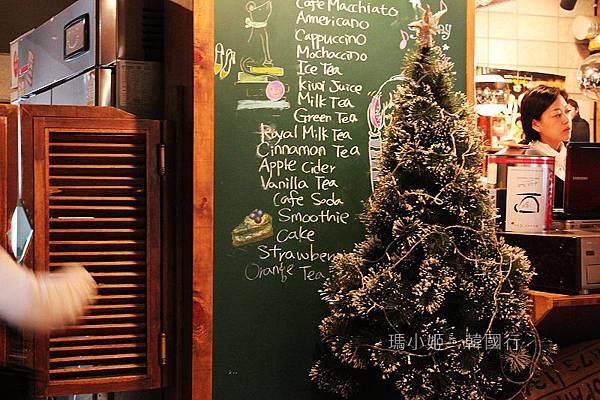 Cafe Macchiato
Americano
Cappuccino
Mochaccino
Ice Tea
Kiwi Juice
Milk Tea
Green Tea
Royal Milk Tea
Cinnamon Tea
Apple Cider
Vanilla Tea
Cafe Soda
Smoothie
Cake
Strawberry
Orange Tea
瑪小姬。韓國行。